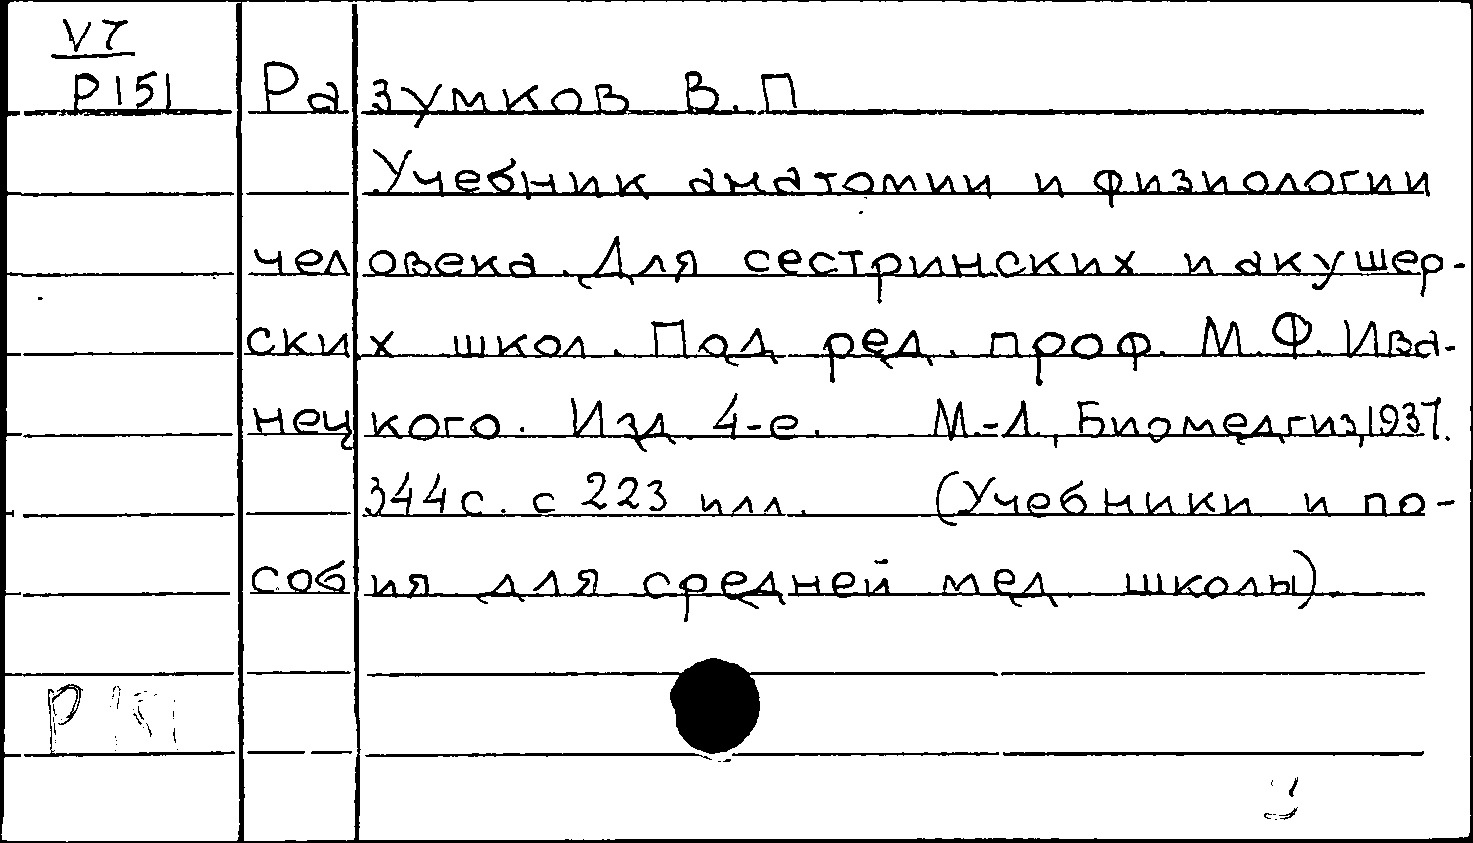 V7
P151
Разумков В.П
Учебник анатомии и физиологии
человека. Для сестринских и акушер-
ских школ. Под ред. проф. М.Ф. Ива-
нецкого. Изд 4-е. М.-Л., Биомедгиз, 1937.
344с. с 223 илл. (Учебники и по-
собия для средней мед. школы).
P151